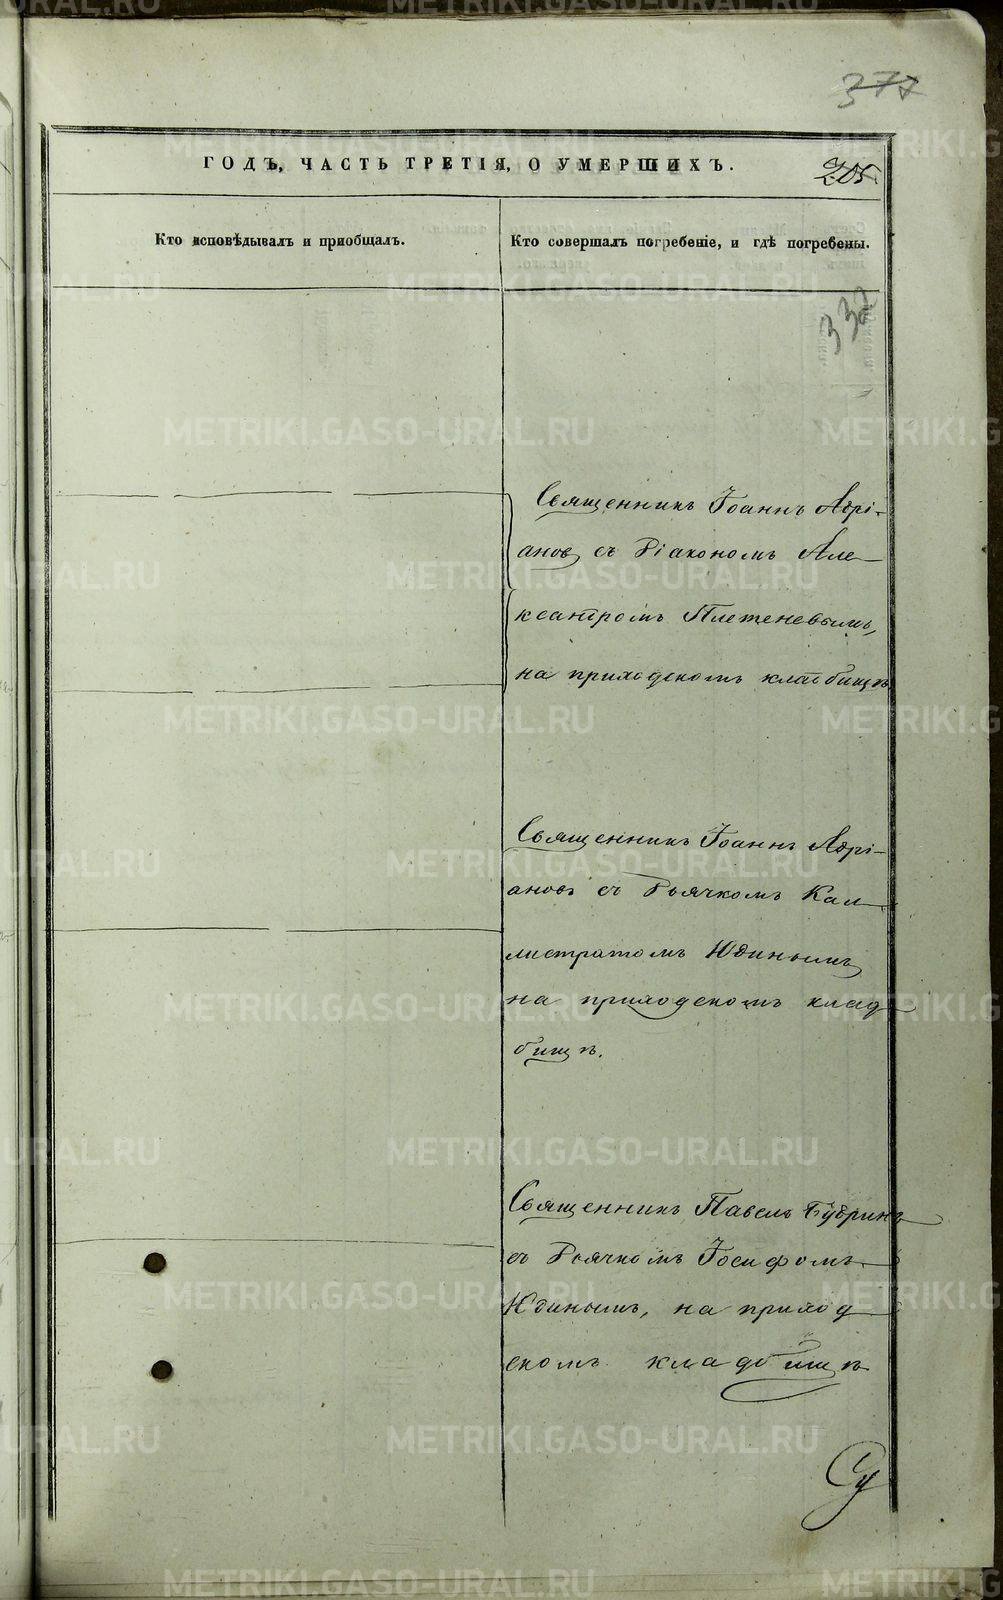 377
ГОДЪ, ЧАСТЬ ТРЕТІЯ, О УМЕРШИХЪ.
205.
Кто исповѣдывалъ и приобщалъ.
Кто совершалъ погребеніе, и гдѣ погребены.
332
Священникъ Іоаннъ Адрі-
ановъ съ Діакономъ Але-
ксандромъ Плетеневымъ,
на приходскомъ кладбищѣ
Священникъ Іоаннъ Адрі-
ановъ съ Дьячкомъ Кал-
листратомъ Юдинымъ
на приходскомъ клад
бищѣ.
Священникъ Павелъ Бубринъ
съ Дьячкомъ Іосифомъ
Юдинымъ, на приход
скомъ кладбищѣ
METRIKI.GASO-URAL.RU